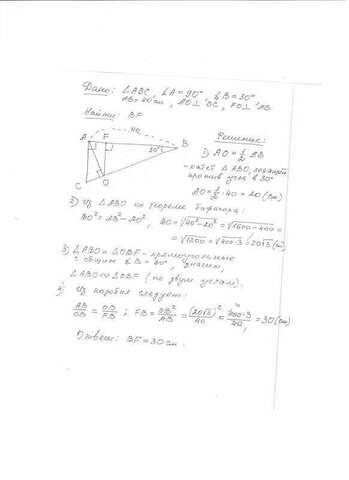 Дано: △ABC, ∠A=90°, ∠B=30°
AB=40см, AO⊥BC, FO⊥AB
Найти: BF
40
A F B
30°
C O
Решение:
1) AO=½ AB
- катет △ABO, лежащий
против угла в 30°
AO=½·40=20(см)
2) Из △ABO по теореме Пифагора:
BO²=AB²-AO², BO=√40²-20²=√1600-400=
=√1200=√400·3=20√3(см)
3) △ABO и △OBF - прямоугольные
с общим ∠B=30°, значит,
△ABO∾△OBF (по двум углам).
4) Из подобия следует:
AB/OB=OB/FB; FB=OB²/AB=(20√3)²/40=400·3/40=30(см)
Ответ: BF=30см.